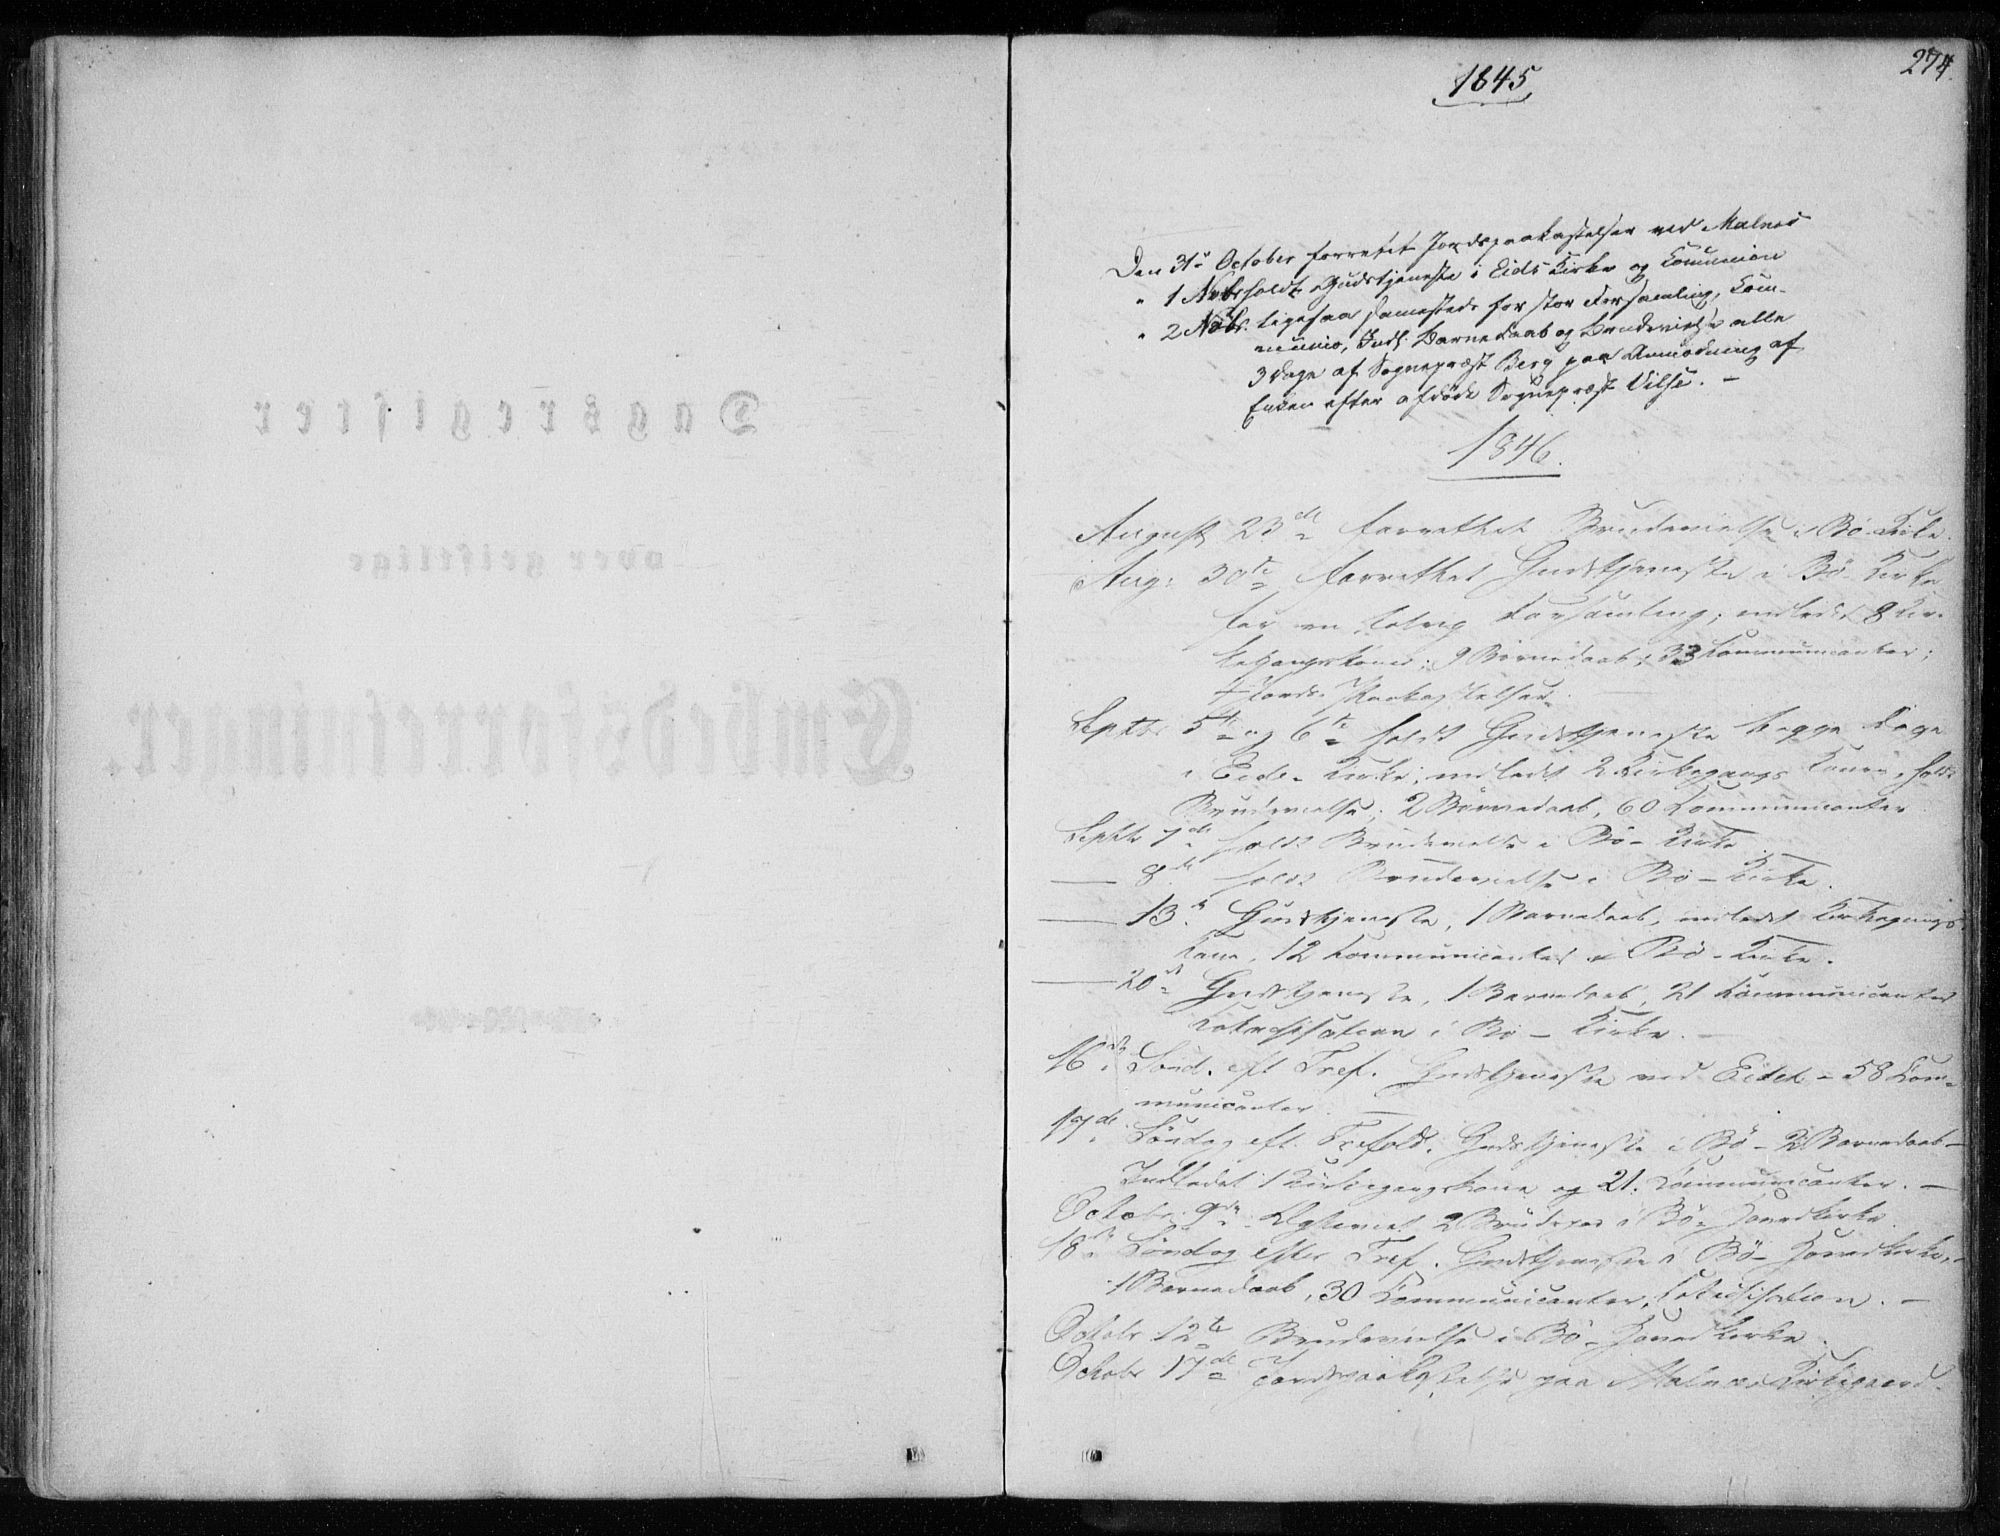 Dagsregister
over geistlige
Embedsforretninger.
274.
1845
Den 31te October forrettet Jordspaakastelser ved Malnes
" 1 Novbr holdt Gudstjeneste i Eids Kirke og Communion
" 2 Novbr. ligesaa sammesteds for stor Forsamling, Com-
munion, Indl. Barnedaab og Brudevielse alle
3 Dage af Sognepræst Berg paa Anmodning af
Enken efter afdøde Sognepræst Vilse. -
1846.
August 23de forrettet Brudevielse i Bø Kirke.
Aug: 30te forrettet Gudstjeneste i Bø Kirke
for en talrig Forsamling; indledt 8 Kir-
kegangskoner; 9 Barnedaab; 33 Communicanter;
4 Jords-Paakastelser.
Septbr 5te og 6te holdt Gudstjeneste begge Dage
i Eide-Kirke; indledt 2 Kirkegangs Koner, holdt
Brudevielse; 2 Barnedaab, 60 Communicanter
Septbr 7de holdt Brudevielse i Bø-Kirke
— 8de holdt Brudevielse i Bø-Kirke.
— 13de Gudstjeneste, 1 Barnedaab, indledet Kirkegangs
kone, 12 Communicanter i Bø-Kirke.
— 20de Gudstjeneste, 1 Barnedaab, 21 Communicanter
Catechisation i Bø-Kirke. -
16de Sønd. eft Tref. Gudstjeneste ved Eidet - 58 Com-
municanter. —
17de Søndag eft. Trefold. Gudstjeneste i Bø - 2 Barnedaab -
Indledet 1 Kirkegangskone og 21. Communicanter. -
Octobr. 9de 2 Brudepar i Bø-Hovedkirke.
18de Søndag efter Tref. Gudstjeneste i Bø-Hovedkirke,
1 Barnedaab, 30 Communicanter, Catechisation. -
Octobr 12te Brudevielse i Bø-Hovedkirke.
Octobr 17de Jordspaakastelse paa Malnes Kirkegaard.